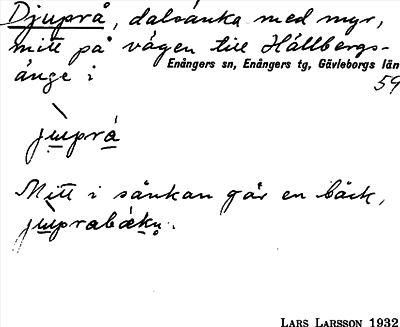 Djuprå, dalsänka med myr,
mitt på vägen till Hållbergs-
änge i
Enångers sn, Enångers tg, Gävleborgs län
59
jùprá
Mitt i sänkan går en bäck,
jùprabäkn.
LARS LARSSON 1932